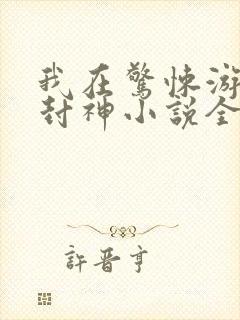 我在驚悚游
封神小說全
許晉亨